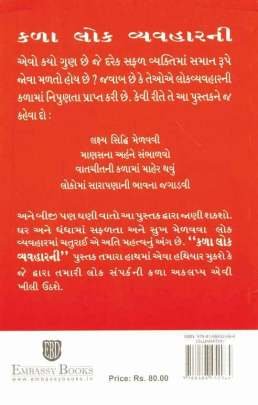 કળા લોક વ્યવહારની
એવો કયો ગુણ છે જે દરેક સફળ વ્યક્તિમાં સમાન રૂપે
જોવા મળતો હોય છે ? જવાબ છે કે તેઓએ લોકવ્યવહારની
કળામાં નિપુણતા પ્રાપ્ત કરી છે. કેવી રીતે તે આ પુસ્તકને જ
કહેવા દો :
લક્ષ્ય સિદ્ધિ મેળવવી
માણસના અહંને સંભાળવો
વાતચીતની કળામાં માહેર થવું
લોકોમાં સારાપણાની ભાવના જગાડવી
અને બીજી પણ ઘણી વાતો આ પુસ્તક દ્વારા જાણી શકશો.
ઘર અને ધંધામાં સફળતા અને સુખ મેળવવા લોક
વ્યવહારમાં ચતુરાઈ એ અતિ મહત્વનું અંગ છે. "કળા લોક
વ્યવહારની" પુસ્તક તમારા હાથમાં એવા હથિયાર મુકશે કે
જે દ્વારા તમારી લોક સંપર્કની કળા અકલ્પ્ય એવી
ખીલી ઉઠશે.
EBD
EMBASSY BOOKS
www.embassybooks.in
Price: Rs. 80.00